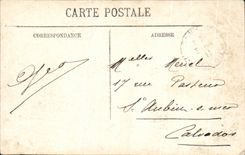 CARTE POSTALE
CORRESPONDANCE
ADRESSE
Melles
17 rue Pasteur
St Aubin s. mer
Calvados